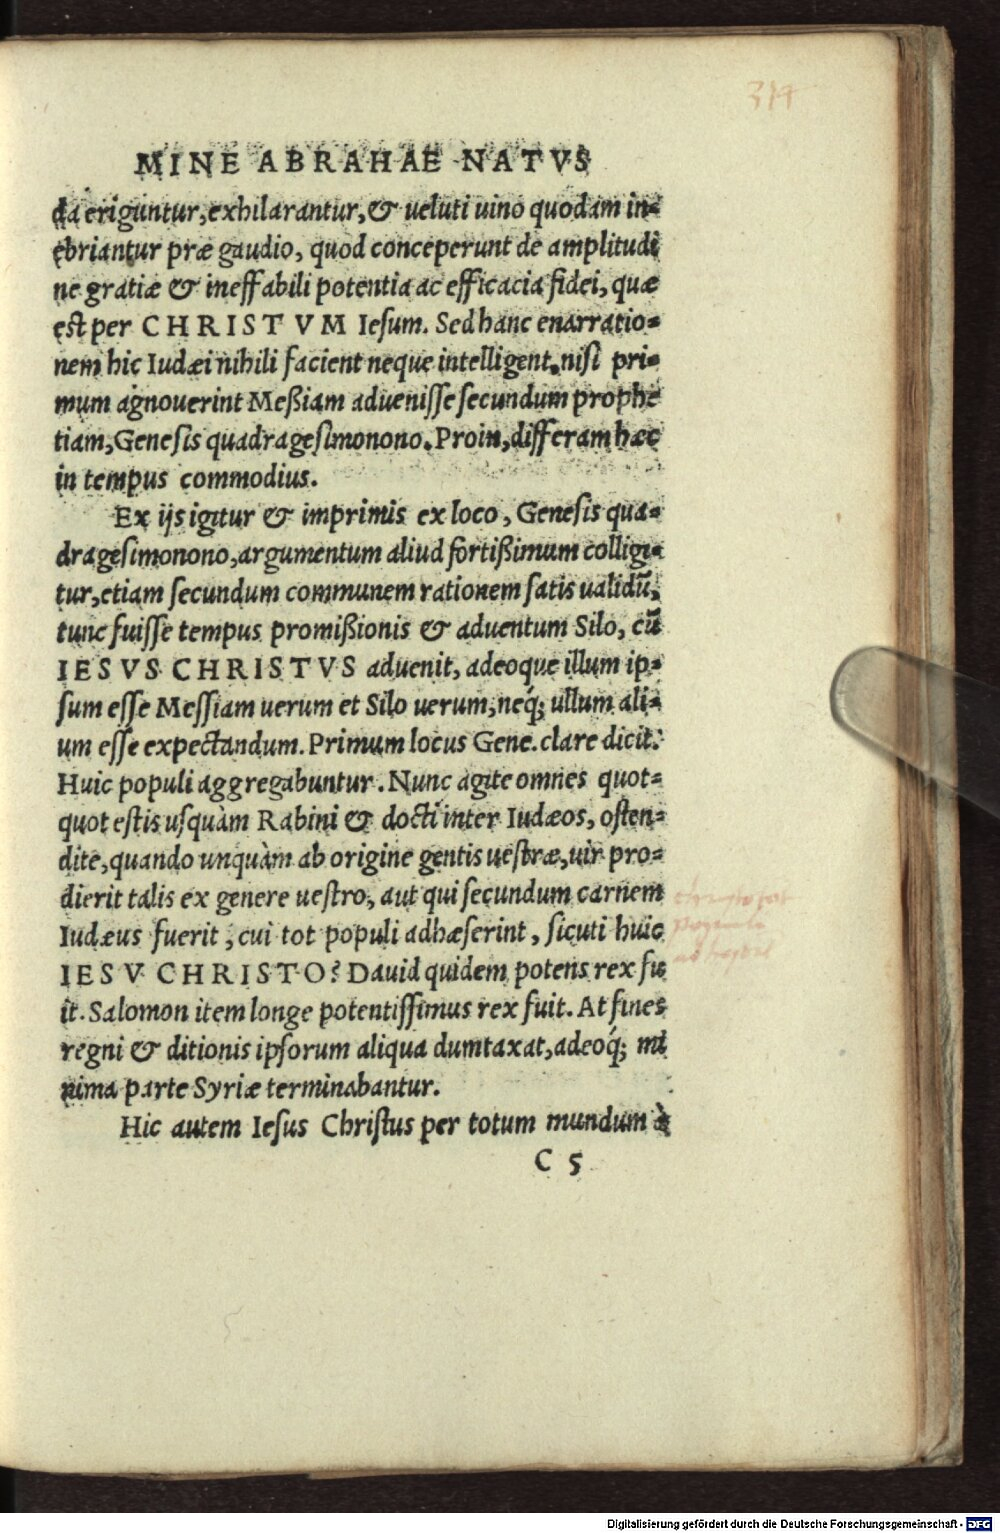 MINE ABRAHAE NATVS
da eriguntur, exhilarantur, & ueluti uino quodam in=
ebriantur præ gaudio, quod conceperunt de amplitudi
ne gratiæ & ineffabili potentia ac efficacia fidei, quæ
est per CHRISTVM Iesum. Sed hanc enarratio=
nem hic Iudæi nihili facient neque intelligent, nisi pri=
mum agnouerint Meßiam aduenisse secundum prophe
tiam, Genesis quadragesimonono. Proin, differam hæc
in tempus commodius.
Ex ijs igitur & imprimis ex loco, Genesis qua=
dragesimonono, argumentum aliud fortißimum colligi=
tur, etiam secundum communem rationem satis ualidũ,
tunc fuisse tempus promißionis & aduentum Silo, cũ
IESVS CHRISTVS aduenit, adeoque illum ip=
sum esse Messiam uerum et Silo uerum, neq́; ullum ali=
um esse expectandum. Primum locus Gene. clare dicit:
Huic populi aggregabuntur. Nunc agite omnes quot=
quot estis usquàm Rabini & docti inter Iudæos, osten=
dite, quando unquàm ab origine gentis uestræ, uir pro=
dierit talis ex genere uestro, aut qui secundum carnem
Iudæus fuerit, cui tot populi adhæserint, sicuti huic
IESV CHRISTO? Dauid quidem potens rex fu
it. Salomon item longe potentissimus rex fuit. At fines
regni & ditionis ipsorum aliqua dumtaxat, adeoq́; mi
nima parte Syriæ terminabantur.
Hic autem Iesus Christus per totum mundum à
C 5
Digitalisierung gefördert durch die Deutsche Forschungsgemeinschaft - DFG